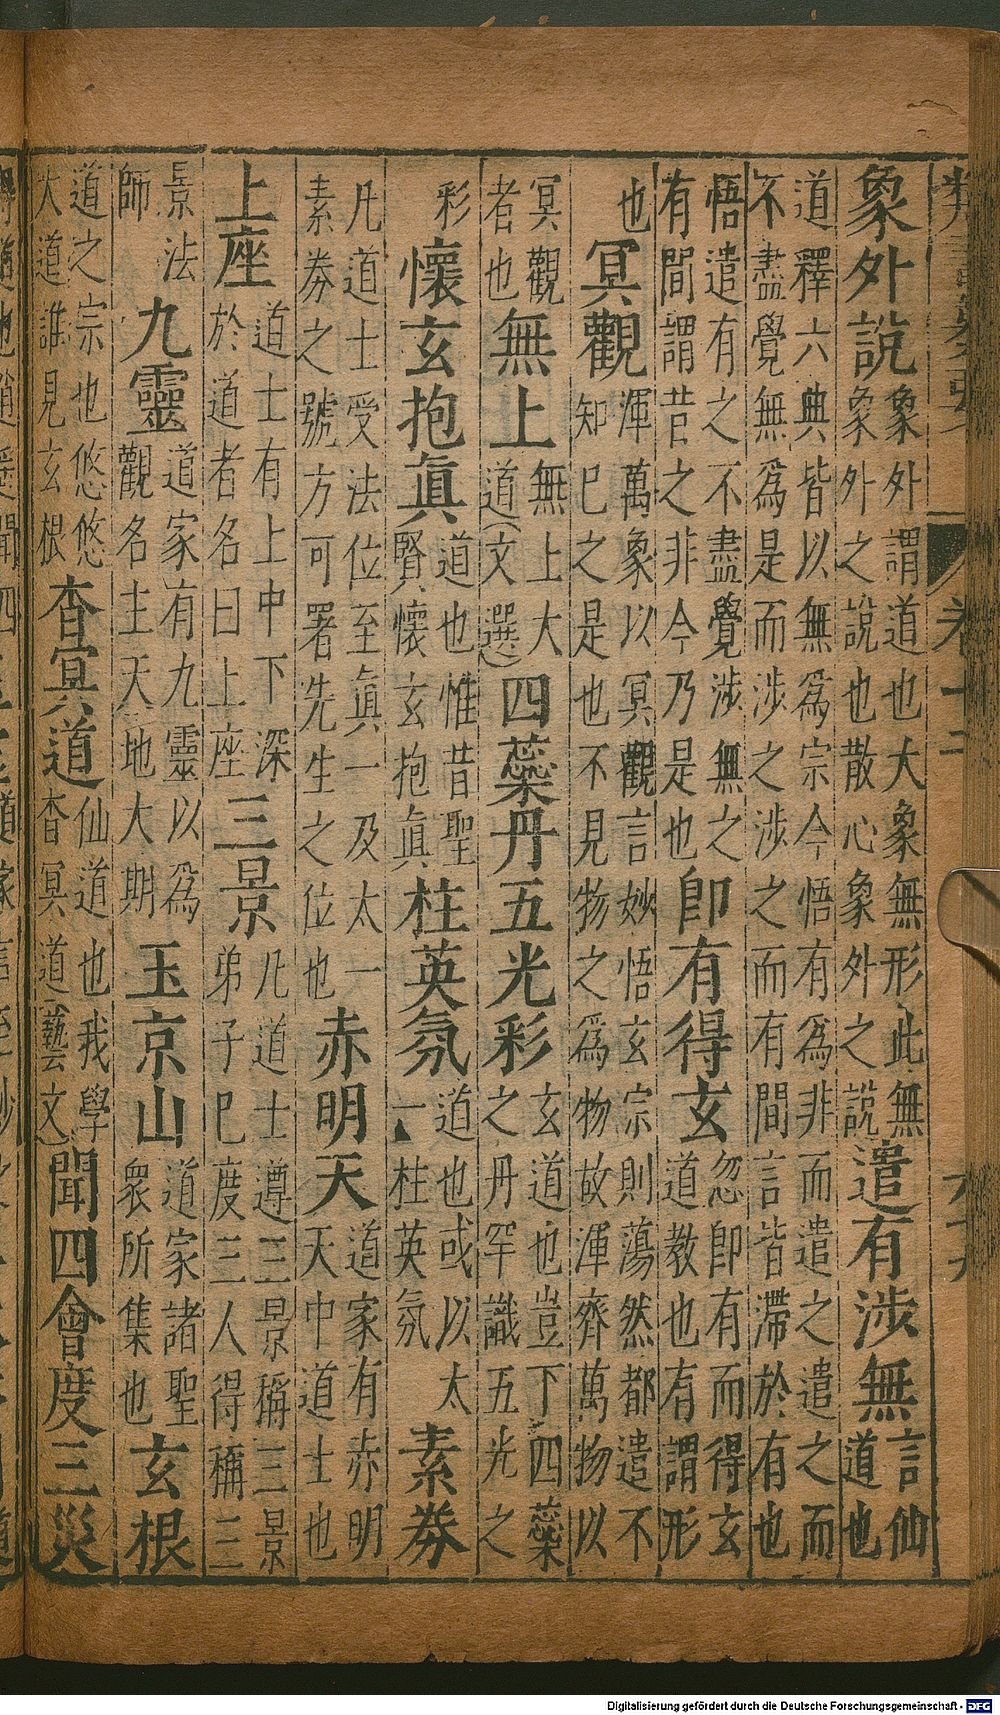 象外說象外謂道也大象無形此無象外之說也散心象外之說遣有涉無言仙道也
道釋六典皆以無爲宗今悟有爲非而遣之遣之而
不盡覺無爲是而涉之涉之而有間言皆滯於有也
悟遣有之不盡覺涉無之有間謂昔之非今乃是也卽有得玄忽卽有而得玄道教也有謂形
也冥觀渾萬象以冥觀言妙悟玄宗則蕩然都遣不知巳之是也不見物之爲物故渾齊萬物以
冥觀者也無上無上大道(文選)四蘂丹五光彩玄道也豈下四蘂之丹罕識五光之
彩懷玄抱眞道也惟昔聖賢懷玄抱眞柱英氛道也或以太一柱英氛素券
凡道士受法位至眞一及太一素券之號方可署先生之位也赤明天道家有赤明天中道士也
上座道士有上中下深於道者名曰上座三景凡道士遵三景稱三景弟子巳度三人得稱三
景法師九靈道家有九靈以爲觀名主天地大期玉京山道家諸聖衆所集也玄根
道之宗也悠悠大道誰見玄根杳冥道仙道也我學杳冥道(藝文)聞四會度三災
Digitalisierung gefördert durch die Deutsche Forschungsgemeinschaft - DFG